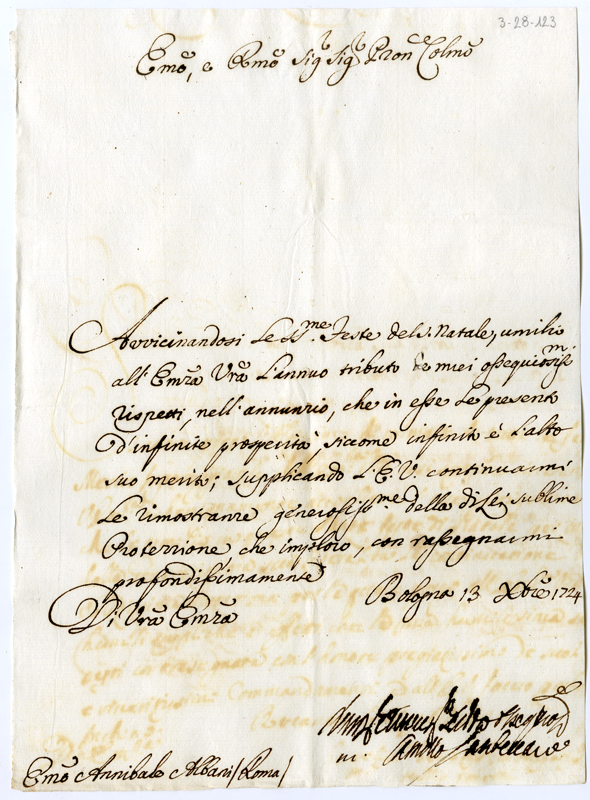 3-28-123
Emo, e Rmo Sigr Sigr Pron Colmo
Avvicinandosi le Sme Feste del S. Natale, umilio
all' Emza Vra l'annuo tributo de miei ossequiosissmi
rispetti, nell'annunzio, che in esse le presento
d'infinite prosperità, siccome infinito è l'alto
suo merito; supplicando l'E. V. continuarmi
le rimostranze generosissme della di Lei sublime
Protezzione che imploro, con rassegnarmi
profondissimamente
Di Vra Emza
Bologna 13 Xbre 1724
Emo Annibale Albani (Roma)